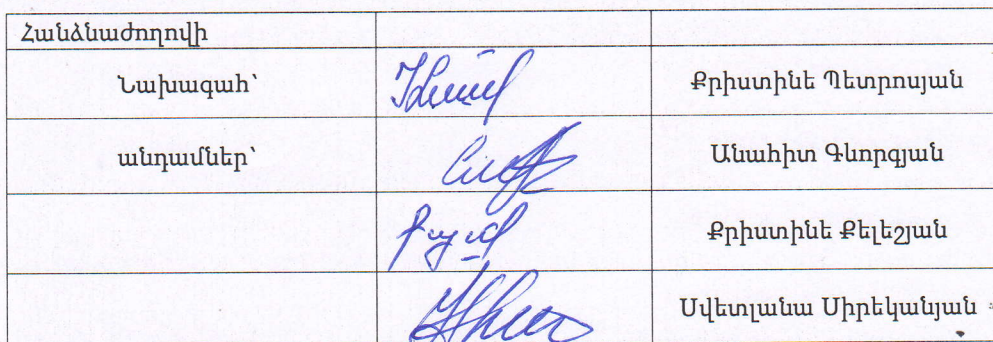 Հանձնաժողովի
Նախագահ՝ Քրիստինե Պետրոսյան
անդամներ՝ Անահիտ Գևորգյան
Քրիստինե Քելեշյան
Սվետլանա Սիրեկանյան